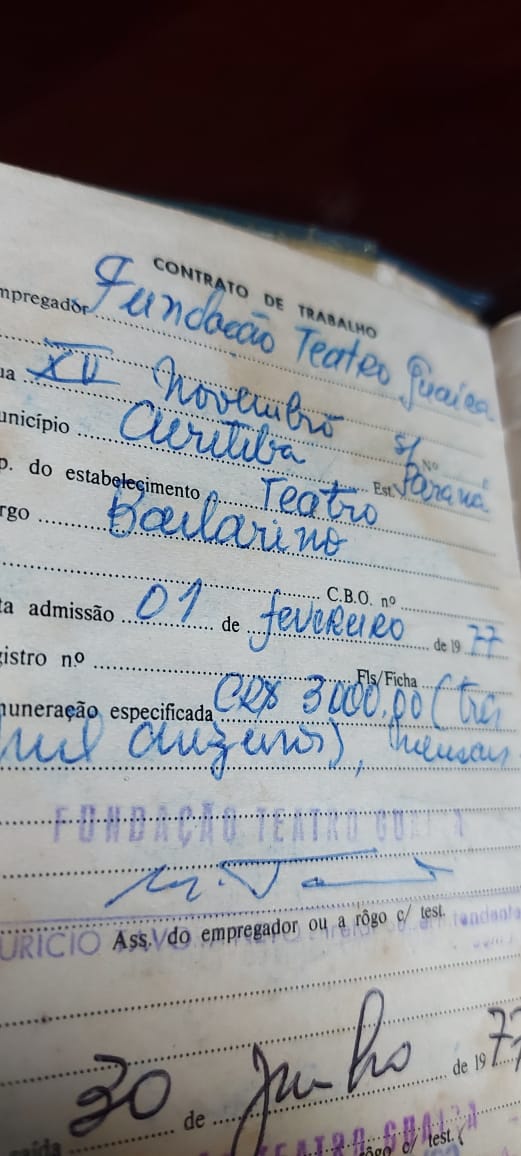 CONTRATO DE TRABALHO
mpregador Fundação Teatro Guaíra
ua XV Novembro s/ Nº
unicípio Curitiba Est. Paraná
p. do estabelecimento Teatro
rgo Bailarino
C.B.O. nº
ta admissão 01 de fevereiro de 19 77
gistro nº Fls/Ficha
muneração especificada CR$ 3000,00 (tres
mil cruzeiros), mensais
FUNDAÇÃO TEATRO GUAÍRA
Ass. do empregador ou a rôgo c/ test.
URICIO
30 de Junho de 19 77
TEATRO GUAÍRA
rôgo c/ test.